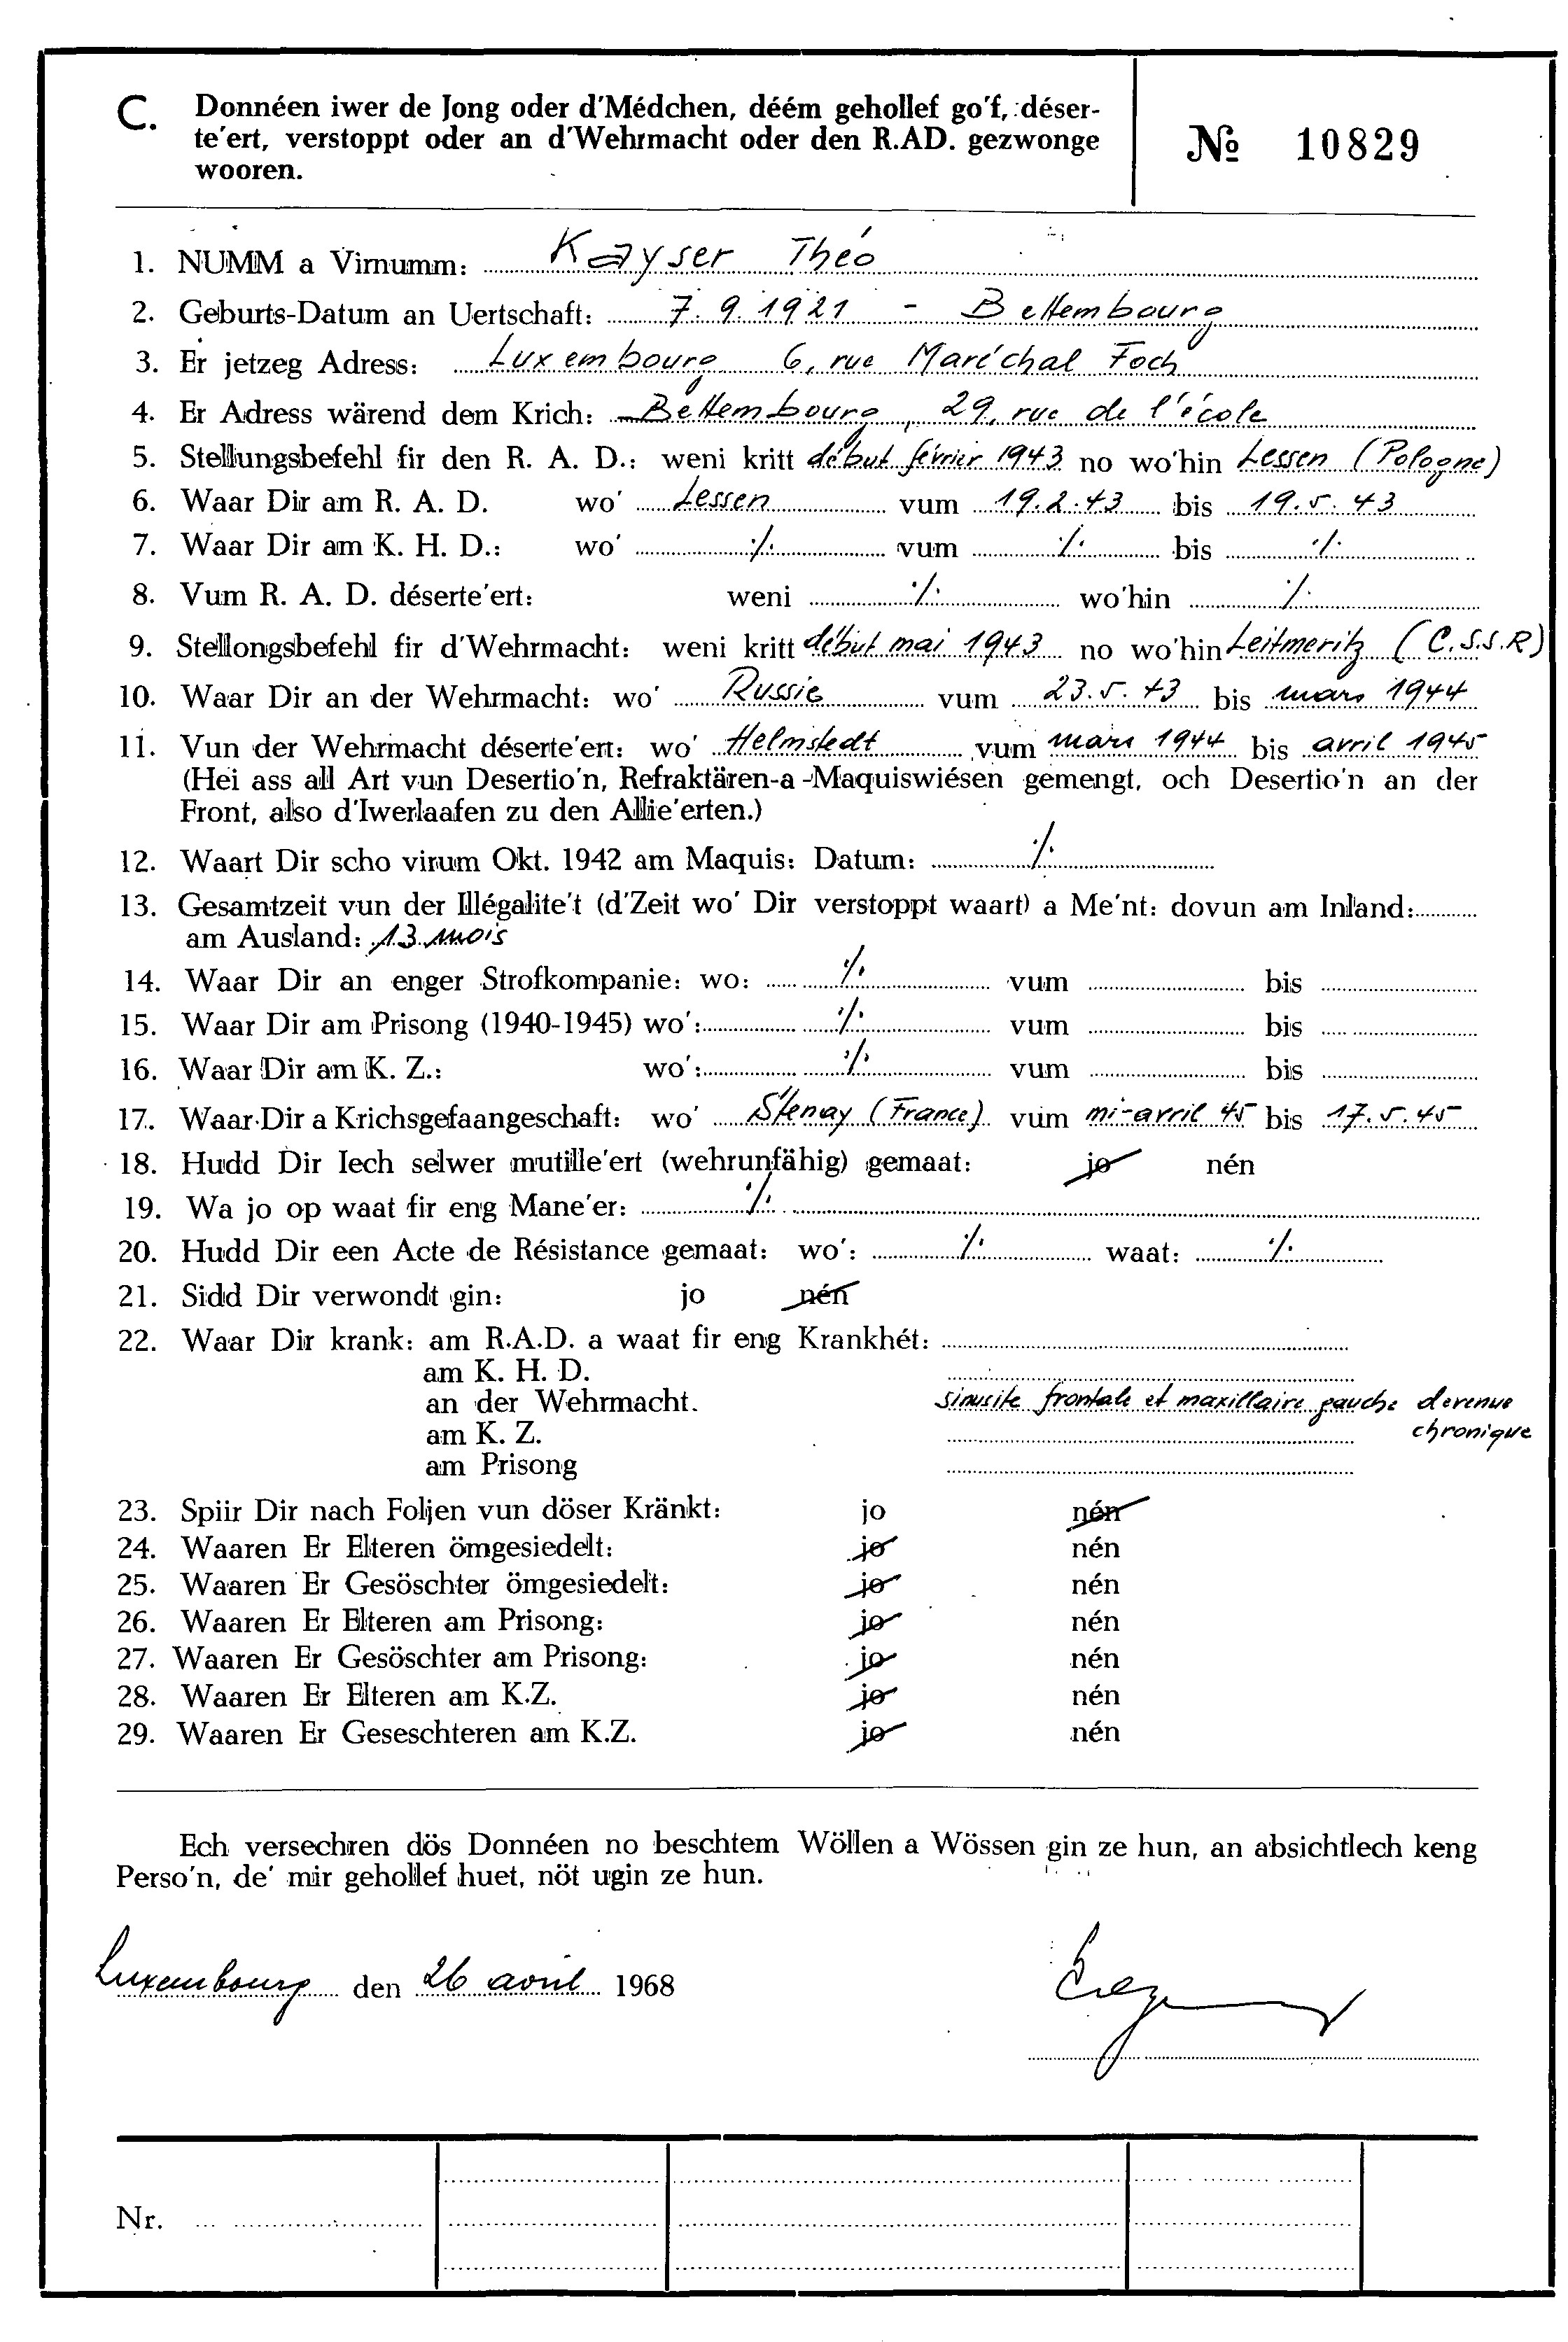 C. Donnéen iwer de Jong oder d'Médchen, déém gehollef go'f, déser-
te'ert, verstoppt oder an d'Wehrmacht oder den R.AD. gezwonge
wooren.
№ 10829
1. NUMM a Virnumm: Kayser Théo
2. Geburts-Datum an Uertschaft: 7.9.1921 - Bettembourg
3. Er jetzeg Adress: Luxembourg 6, rue Maréchal Foch
4. Er Adress wärend dem Krich: Bettembourg, 29, rue de l'école
5. Stellungsbefehl fir den R. A. D.: weni kritt début février 1943 no wo'hin Lessen (Pologne)
6. Waar Dir am R. A. D. wo' Lessen vum 19.2.43 bis 19.5.43
7. Waar Dir am K. H. D.: wo' ./. vum ./. bis ./.
8. Vum R. A. D. déserte'ert: weni ./. wo'hin ./.
9. Stellongsbefehl fir d'Wehrmacht: weni kritt début mai 1943 no wo'hin Leitmeritz (C.S.S.R)
10. Waar Dir an der Wehrmacht: wo' Russie vum 23.5.43 bis mars 1944
11. Vun der Wehrmacht déserte'ert: wo' Helmstedt vum mars 1944 bis avril 1945
(Hei ass all Art vun Desertio'n, Refraktären-a-Maquiswiésen gemengt, och Desertio'n an der
Front, also d'Iwerlaafen zu den Allie'erten.)
12. Waart Dir scho virum Okt. 1942 am Maquis: Datum: ./.
13. Gesamtzeit vun der Illégalite't (d'Zeit wo' Dir verstoppt waart) a Me'nt: dovun am Inland:
am Ausland: 13 mois
14. Waar Dir an enger Strofkompanie: wo: ./. vum bis
15. Waar Dir am Prisong (1940-1945) wo': ./. vum bis
16. Waar Dir am K. Z.: wo': ./. vum bis
17. Waar Dir a Krichsgefaangeschaft: wo' Stenay (France) vum mi-avril 45 bis 17.5.45
18. Hudd Dir Iech selwer mutille'ert (wehrunfähig) gemaat: jo nén
19. Wa jo op waat fir eng Mane'er: ./.
20. Hudd Dir een Acte de Résistance gemaat: wo': ./. waat: ./.
21. Sidd Dir verwondt gin: jo nén
22. Waar Dir krank: am R.A.D. a waat fir eng Krankhét:
am K. H. D.
an der Wehrmacht. sinusite frontale et maxillaire gauche devenue
chronique
am K. Z.
am Prisong
23. Spiir Dir nach Foljen vun döser Kränkt: jo nén
24. Waaren Er Elteren ömgesiedelt: jo nén
25. Waaren Er Gesöschter ömgesiedelt: jo nén
26. Waaren Er Elteren am Prisong: jo nén
27. Waaren Er Gesöschter am Prisong: jo nén
28. Waaren Er Elteren am K.Z. jo nén
29. Waaren Er Geseschteren am K.Z. jo nén
Ech versechren dös Donnéen no beschtem Wöllen a Wössen gin ze hun, an absichtlech keng
Perso'n, de' mir gehollef huet, nöt ugin ze hun.
Luxembourg den 26 avril 1968
Nr.